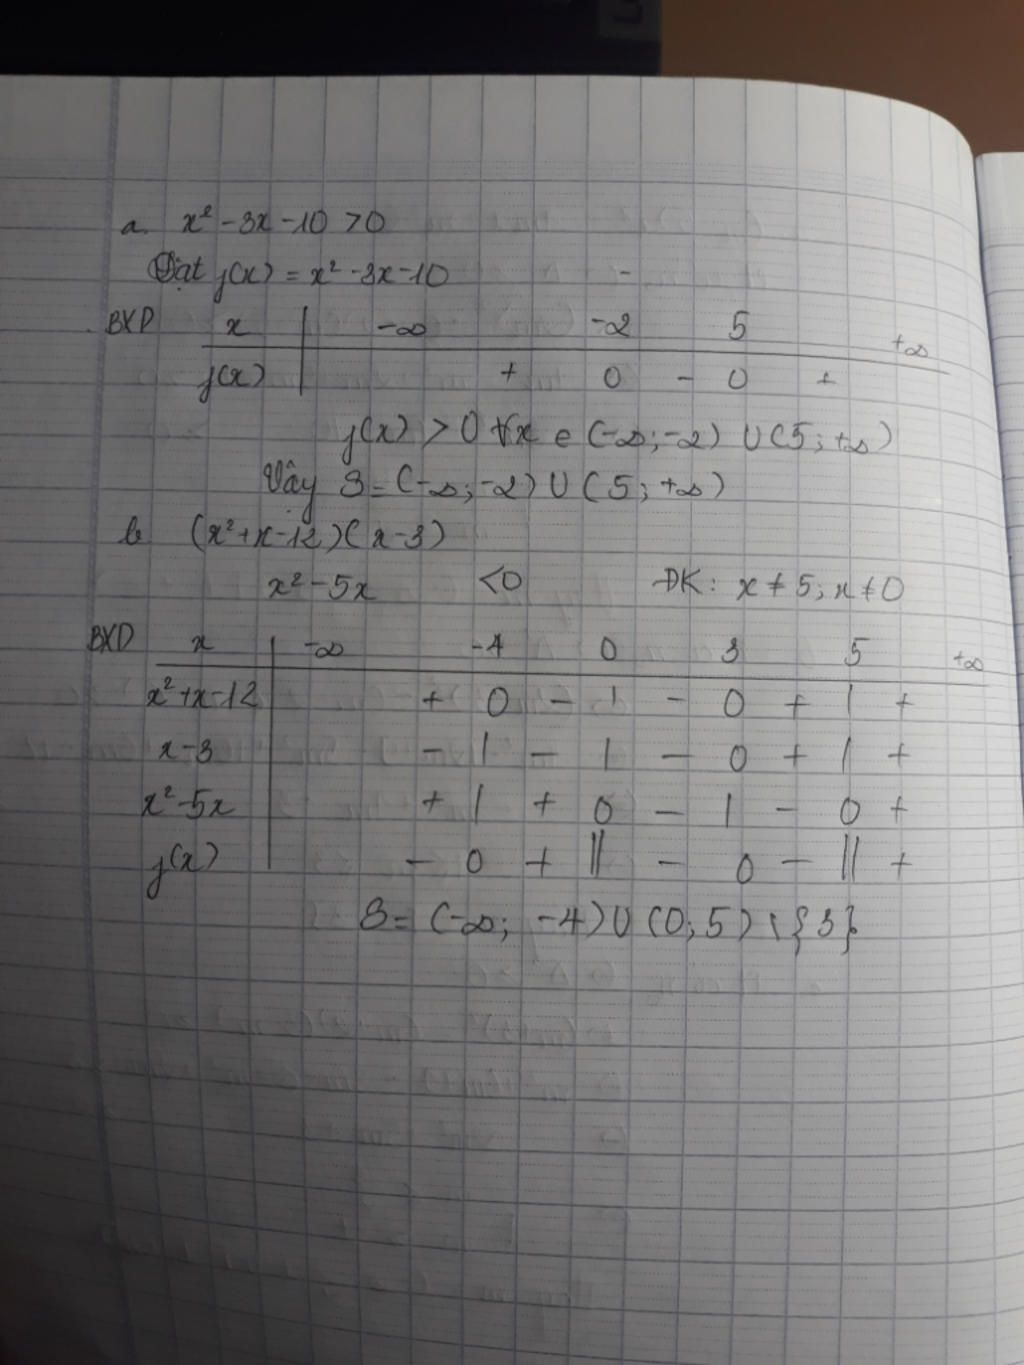 a. x² - 3x - 10 > 0
Đặt f(x) = x² - 3x - 10
BXD x | -∞ -2 5 +∞
f(x) | + 0 - 0 +
f(x) > 0 ∀x ∈ (-∞; -2) ∪ (5; +∞)
Vậy S = (-∞; -2) ∪ (5; +∞)
b (x² + x - 12)(x - 3)
x² - 5x < 0 ĐK: x ≠ 5; x ≠ 0
BXD x | -∞ -4 0 3 5 +∞
x² + x - 12 | + 0 - | - 0 + | +
x - 3 | - | - | - 0 + | +
x² - 5x | + | + 0 - | - 0 +
f(x) | - 0 + || - 0 - || +
S = (-∞; -4) ∪ (0; 5) \ {3}